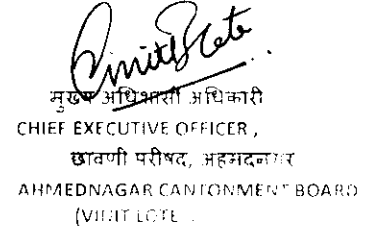 मुख्य अधिशासी अधिकारी
CHIEF EXECUTIVE OFFICER,
छावणी परीषद, अहमदनगर
AHMEDNAGAR CANTONMENT BOARD